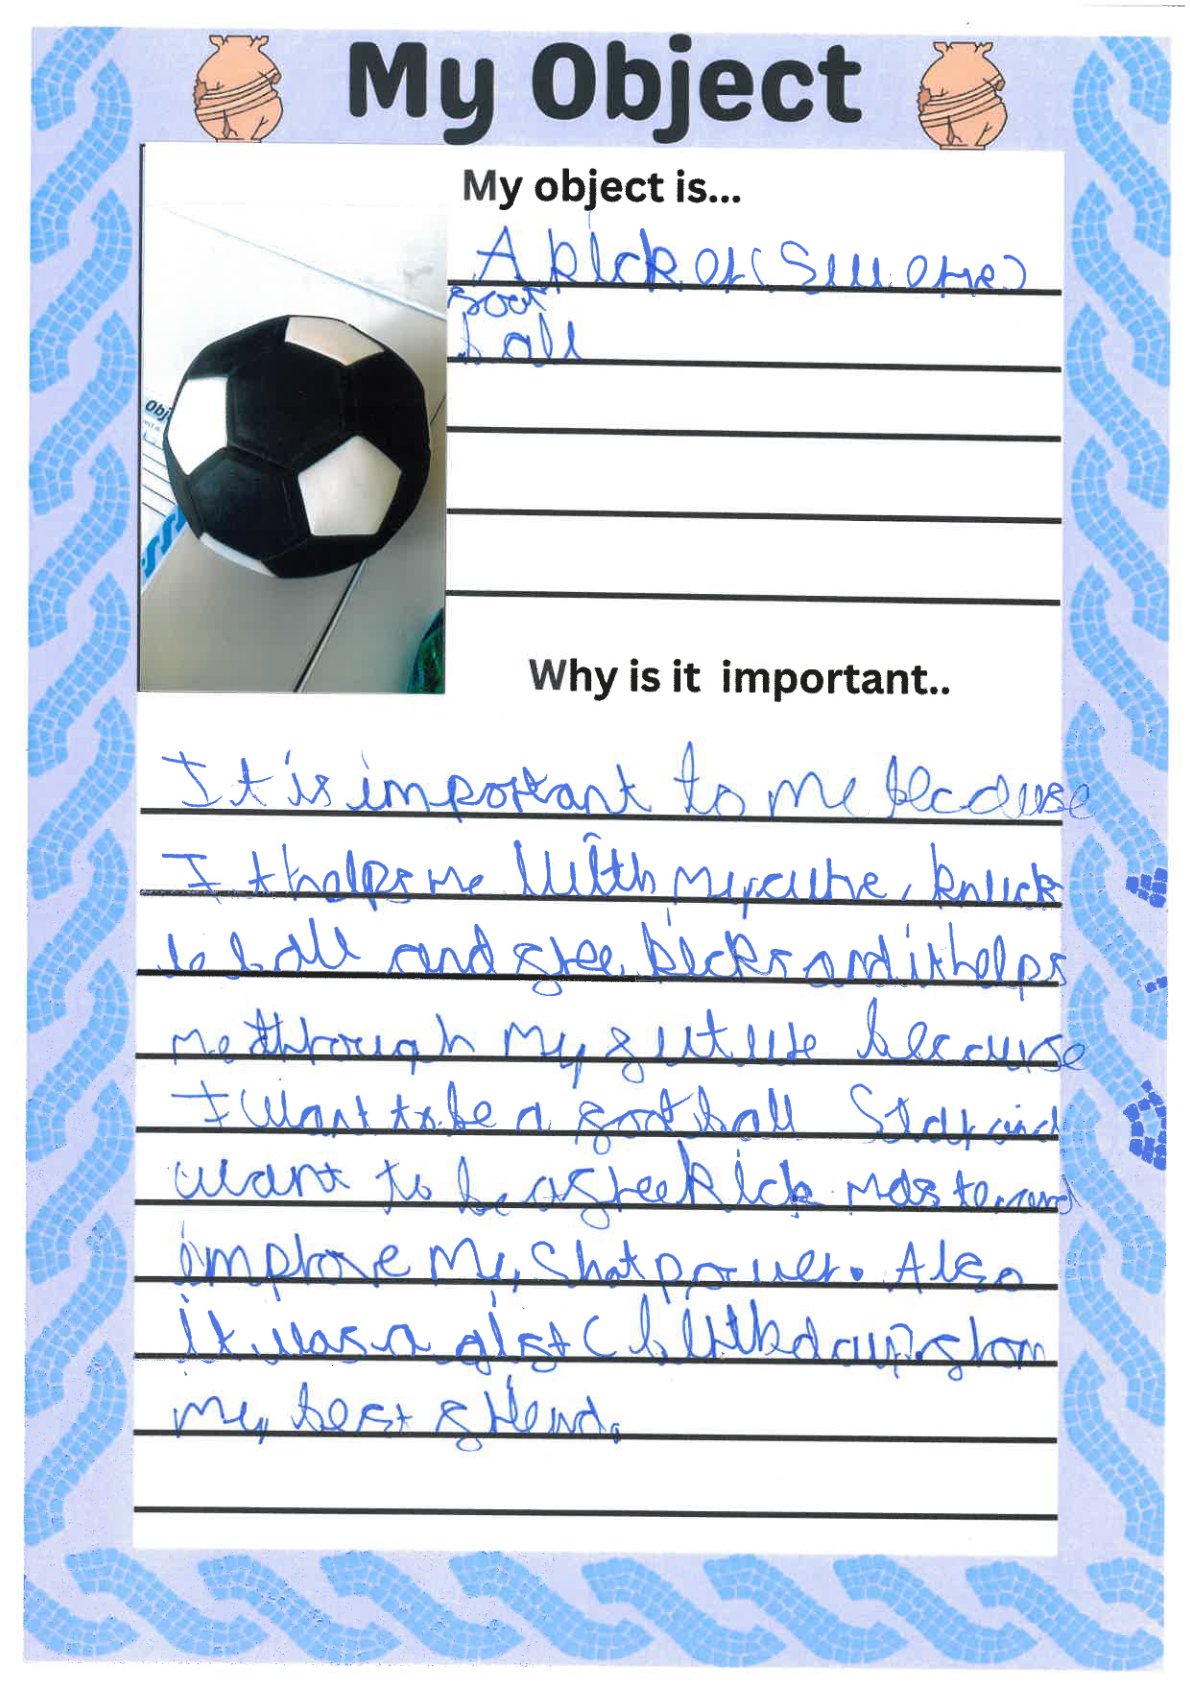 My Object
My object is...
A kick or (Sull one)
foot
ball
Obj
Why is it important..
It is important to me because
It helps me with my curve, knuck
le ball and free kicks and it helps
me through my future because
I want to be a football Star and
want to be a free kick master and
improve my Shot power. Also
it was a gift (birthday) from
my best friend.